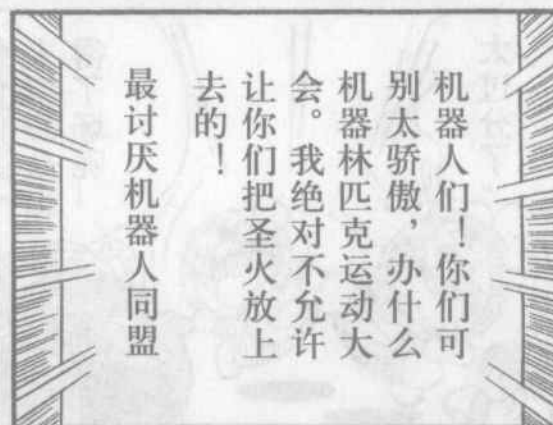 机器人们！你们可
别太骄傲，办什么
机器林匹克运动大
会。我绝对不允许
让你们把圣火放上
去的！
最讨厌机器人同盟